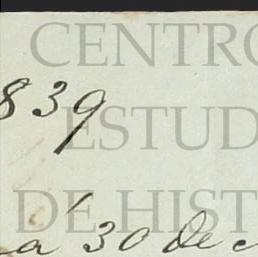 CENTRO
839
ESTUD
DE HIST
a 30 de